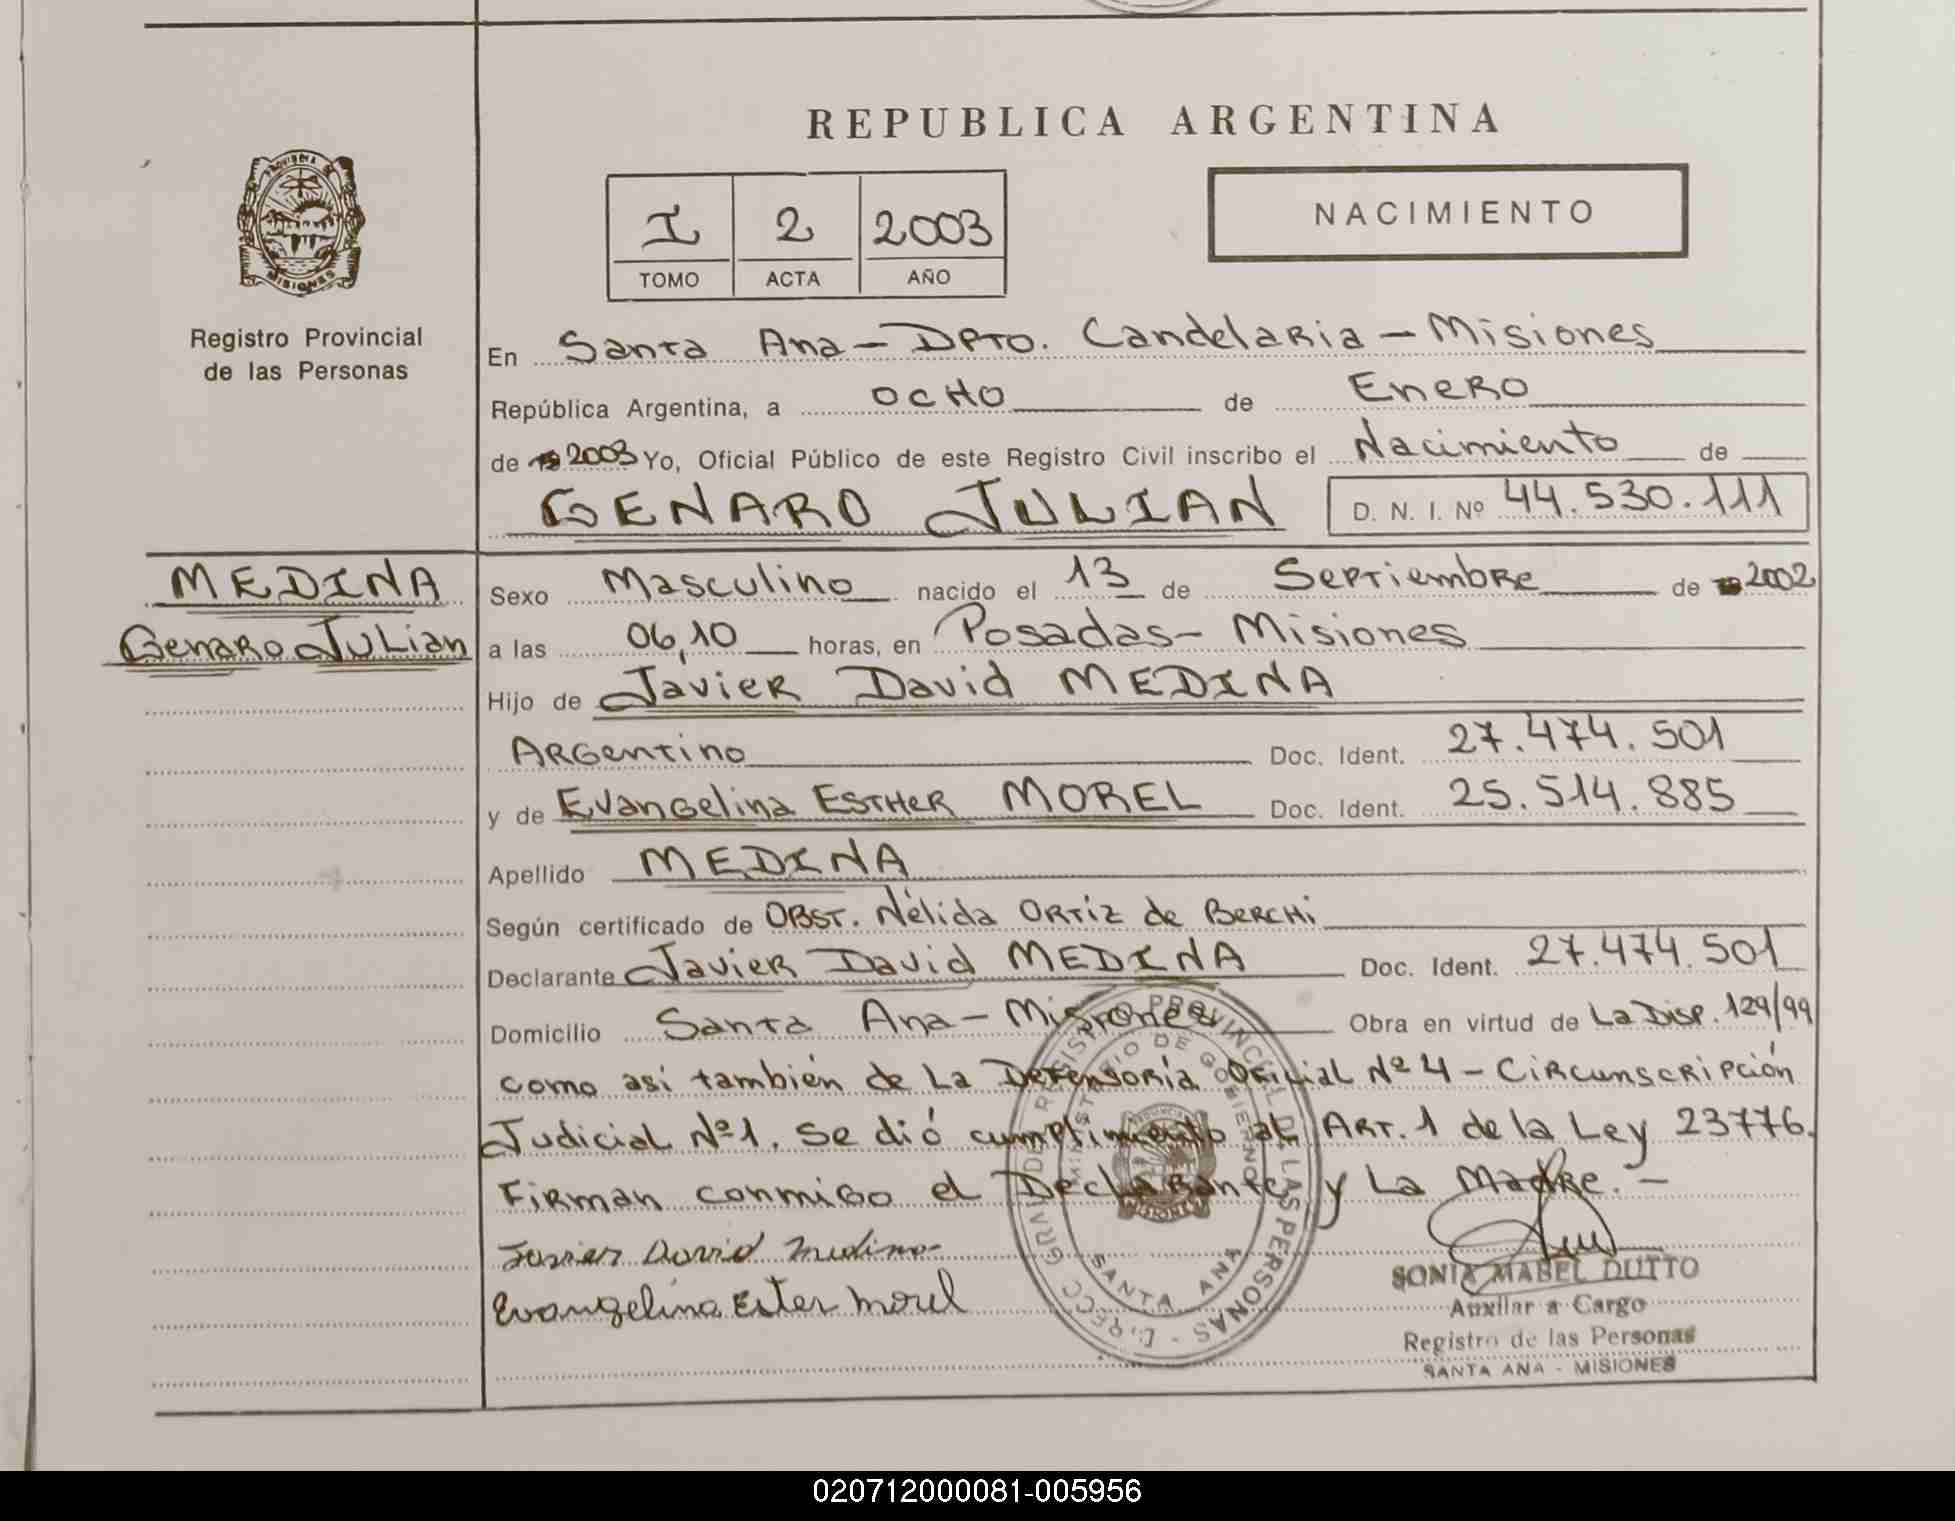 REPUBLICA ARGENTINA
PROVINCIA DE
MISIONES
Registro Provincial
de las Personas
I 2 2003
TOMO ACTA AÑO
NACIMIENTO
En Santa Ana - DPTO. Candelaria - Misiones
República Argentina, a OCHO de Enero
de 19 2003 Yo, Oficial Público de este Registro Civil inscribo el Nacimiento de
GENARO JULIAN D. N. I. Nº 44.530.111
MEDINA
Genaro Julian
Sexo Masculino nacido el 13 de Septiembre de 19 2002
a las 06,10 horas, en Posadas - Misiones
Hijo de Javier David MEDINA
Argentino Doc. Ident. 27.474.501
y de Evangelina Esther MOREL Doc. Ident. 25.514.885
Apellido MEDINA
Según certificado de OBST. Nélida Ortiz de Berchi
Declarante Javier David MEDINA Doc. Ident. 27.474.501
Domicilio Santa Ana - Misiones Obra en virtud de La Disp. 129/99
como así también de La Defensoría Oficial Nº 4 - Circunscripción
Judicial Nº 1. Se dió cumplimiento al ART. 1 de la Ley 23776.
Firman conmigo el Declarante y La Madre. -
Javier David Medina
Evangelina Ester Morel
SANTA ANA
SONIA MABEL DUTTO
Auxiliar a Cargo
Registro de las Personas
SANTA ANA - MISIONES
020712000081-005956